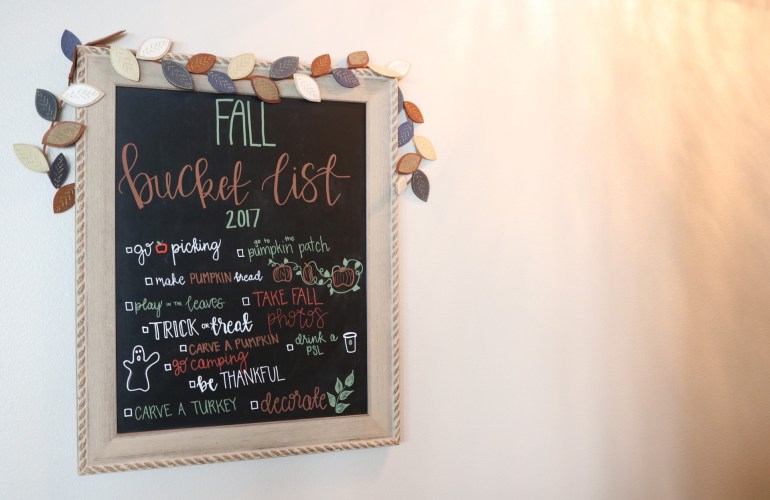 FALL
bucket list
2017
go picking
go to the pumpkin patch
make PUMPKIN bread
play in the leaves
TAKE FALL photos
TRICK or treat
CARVE A PUMPKIN
drink a PSL
go camping
be THANKFUL
CARVE A TURKEY
decorate